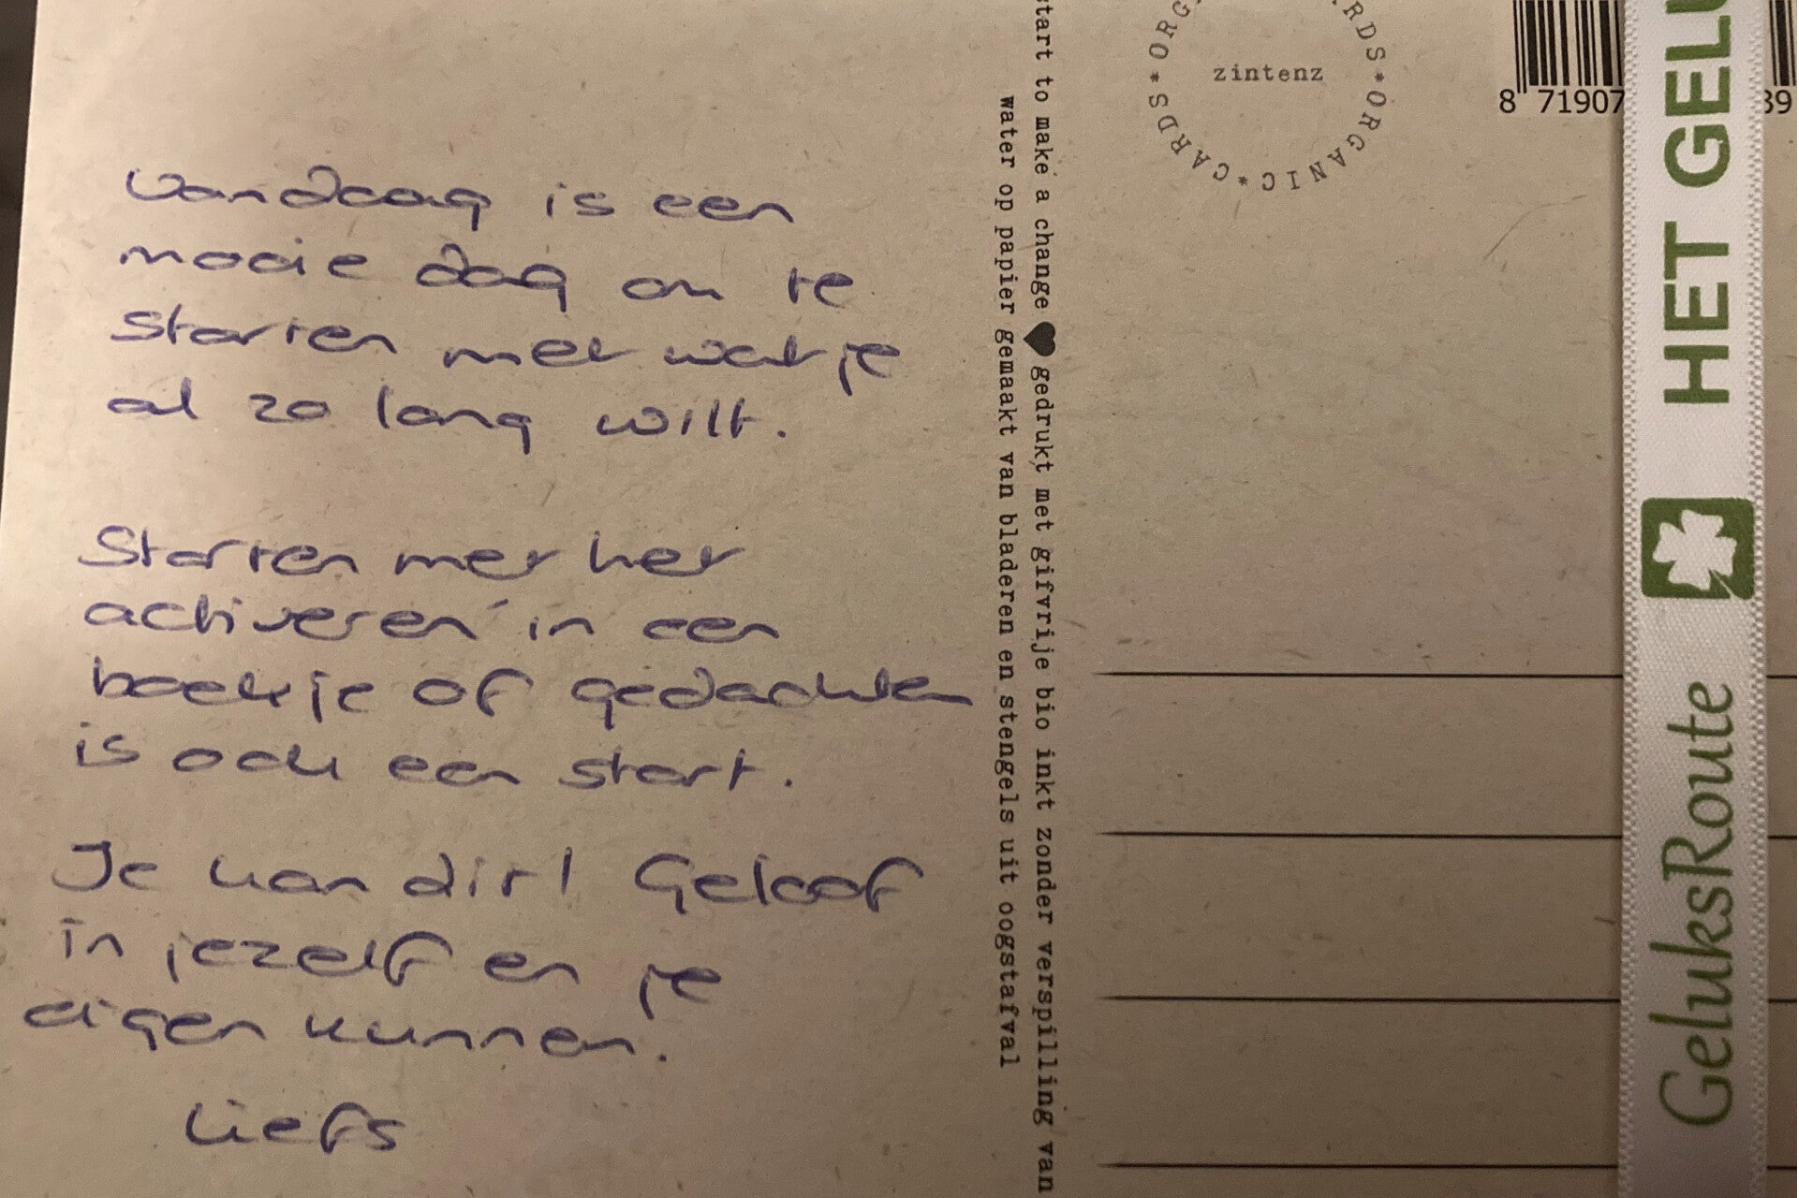 Vandaag is een
mooie dag om te
starten met wat je
al zo lang wilt.
Starten met het
activeren in een
boekje of gedachten
is ook een start.
Je kan dit! Geloof
in jezelf en je
eigen kunnen.
Liefs
start to make a change ♥ gedrukt met gifvrije bio inkt zonder verspilling van
water op papier gemaakt van bladeren en stengels uit oogstafval
zintenz
CARDS * ORGANIC * CARDS *
8 71907
39
HET GELU
GeluksRoute